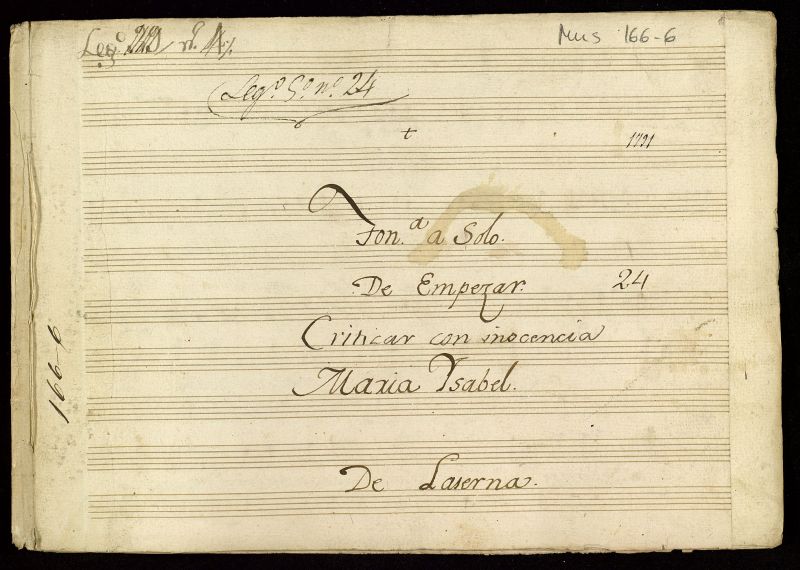 Leg.º nº 4,
Mus 166-6
Leg.º 5.º nº 24
1791
Ton.ª a Solo.
De Empezar. 24
Criticar con inocencia
Maria Ysabel.
De Laserna.
166-6